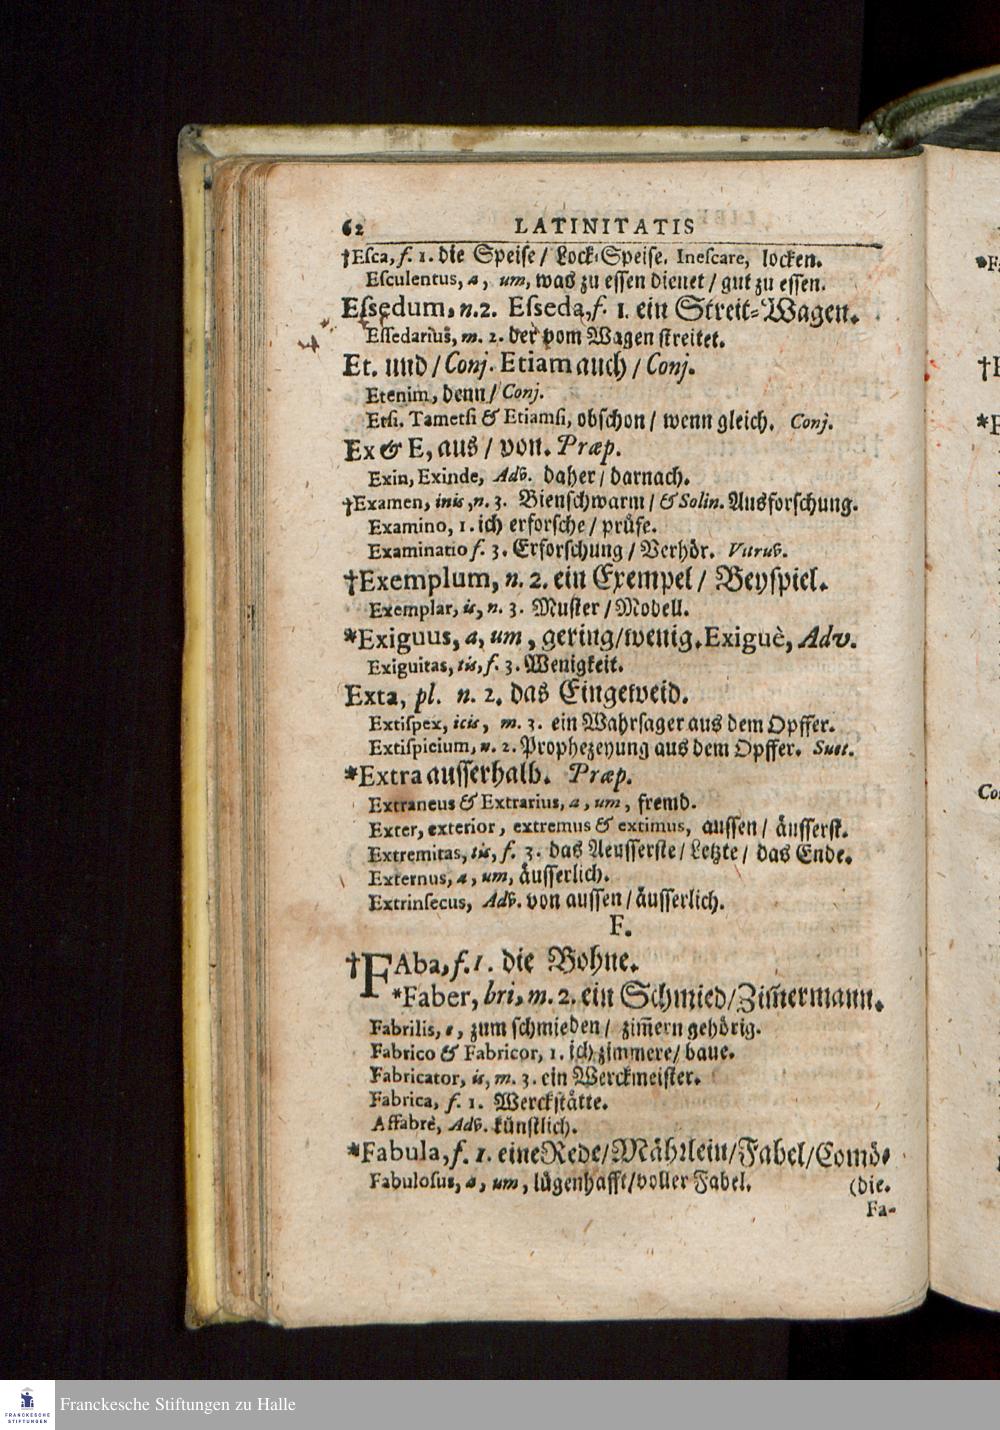 62 LATINITATIS
†Eſca, f. 1. die Speiſe / Lock-Speiſe. Ineſcare, locken.
Eſculentus, a, um, was zu eſſen dienet / gut zu eſſen.
Eſſedum, n. 2. Eſſeda, f. 1. ein Streit-Wagen.
Eſſedarius, m. 2. der vom Wagen ſtreitet.
Et. und / Conj. Etiam auch / Conj.
Etenim, denn / Conj.
Etſi. Tametſi & Etiamſi, obſchon / wenn gleich. Conj.
Ex & E, aus / von. Præp.
Exin, Exinde, Adv. daher / darnach.
†Examen, inis, n. 3. Bienſchwarm / & Solin. Ausforſchung.
Examino, 1. ich erforſche / prüfe.
Examinatio f. 3. Erforſchung / Verhör. Vitruv.
†Exemplum, n. 2. ein Exempel / Beyſpiel.
Exemplar, is, n. 3. Muſter / Modell.
*Exiguus, a, um, gering / wenig. Exiguè, Adv.
Exiguitas, tis, f. 3. Wenigkeit.
Exta, pl. n. 2. das Eingeweid.
Extiſpex, icis, m. 3. ein Wahrſager aus dem Opffer.
Extiſpicium, n. 2. Prophezeyung aus dem Opffer. Suet.
*Extra auſſerhalb. Præp.
Extraneus & Extrarius, a, um, fremd.
Exter, exterior, extremus & extimus, auſſen / äuſſerſt.
Extremitas, tis, f. 3. das Aeuſſerſte / Letzte / das Ende.
Externus, a, um, äuſſerlich.
Extrinſecus, Adv. von auſſen / äuſſerlich.
F.
†FAba, f. 1. die Bohne.
*Faber, bri, m. 2. ein Schmied / Zim̃ermann.
Fabrilis, e, zum ſchmieden / zim̃ern gehörig.
Fabrico & Fabricor, 1. ich zimmere / baue.
Fabricator, is, m. 3. ein Werckmeiſter.
Fabrica, f. 1. Werckſtätte.
Affabrè, Adv. künſtlich.
*Fabula, f. 1. eine Rede / Mährlein / Fabel / Comö-
Fabuloſus, a, um, lügenhafft / voller Fabel. (die.
Fa-
Franckesche Stiftungen zu Halle
FRANCKESCHE
STIFTUNGEN